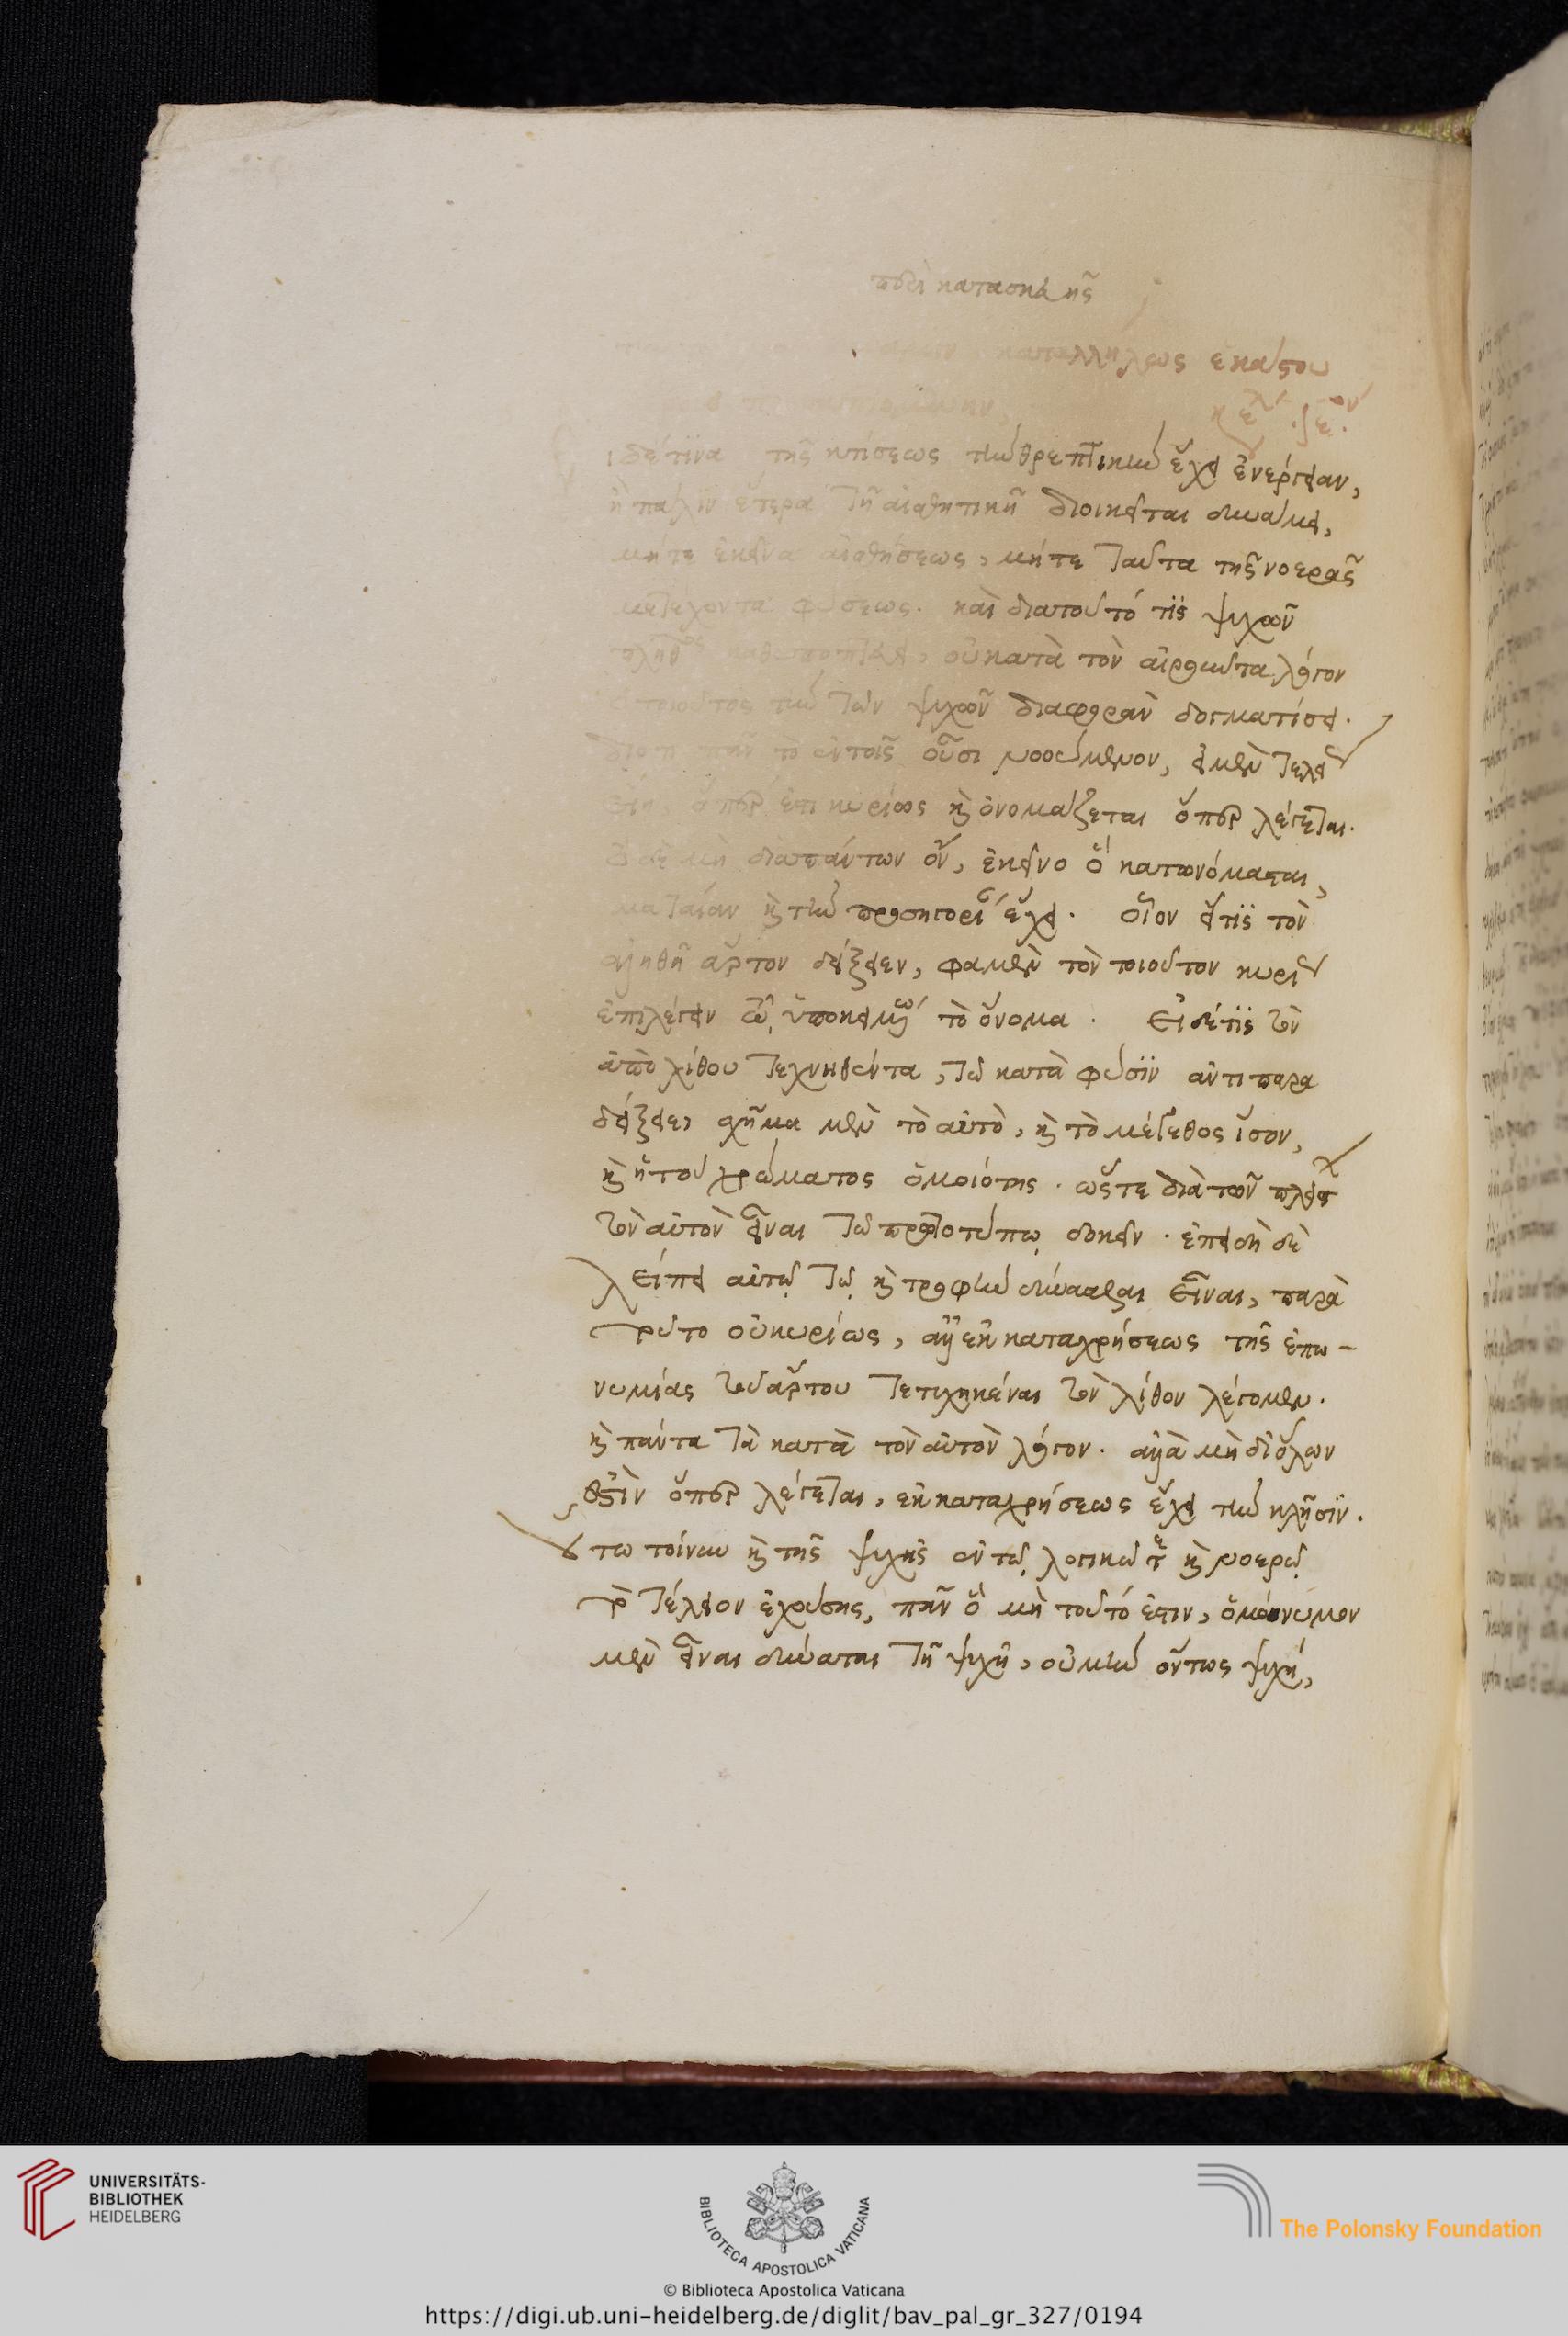 περὶ κατασκευῆς
καταλλήλως ἑκάστου
κεφλ ιε ον
ιδέτινα τῆς κτίσεως τὴν θρεπτικὴν ἔχει ἐνέργειαν,
ἢ πάλιν ἕτερα τῇ αἰσθητικῇ διοικεῖται δυνάμει,
μήτε ἐκεῖνα αἰσθήσεως, μήτε ταῦτα τῆς νοερᾶς
μετέχοντα φύσεως. καὶ διατοῦτό τις ψυχῶν
πλῆθος καθυποπτεύει, οὐ κατὰ τὸν αἱροῦντα λόγον
ὁ τοιοῦτος τὴν τῶν ψυχῶν διαφορὰν δογματίσει.
διότι πᾶν τὸ ἐν τοῖς οὖσι νοούμενον, εἰ μὲν τελεί
εἴη, ὅπερ ἐστὶ κυρίως καὶ ὀνομάζεται ὅπερ λέγεται.
ὃ δὲ μὴ διαπάντων ὂν, ἐκεῖνο ὃ κατωνόμασται,
ματαίαν καὶ τὴν προσηγορίαν ἔχει. οἷον εἴ τις τὸν
ἀληθῆ ἄρτον δείξειεν, φαμὲν τὸν τοιοῦτον κυρί
ἐπιλέγειν τῷ ὑποκειμένῳ τὸ ὄνομα. Εἰ δέ τις τὸν
ἀπὸ λίθου τεχνηθέντα, τῷ κατὰ φύσιν ἀντιπαρα
δείξειε, σχῆμα μὲν τὸ αὐτὸ, καὶ τὸ μέγεθος ἴσον,
καὶ ἡ τοῦ χρώματος ὁμοιότης. ὥστε διὰ τῶν πλείστ
τὸν αὐτὸν εἶναι τῷ πρωτοτύπῳ δοκεῖν. ἐπειδὴ δὲ
λείπει αὐτῷ τῷ καὶ τροφὴν δύνασθαι εἶναι, παρὰ
τοῦτο οὐ κυρίως, ἀλλ' ἐκ καταχρήσεως τῆς ἐπω-
νυμίας τοῦ ἄρτου τετυχηκέναι τὸν λίθον λέγομεν.
καὶ πάντα τὰ κατὰ τὸν αὐτὸν λόγον. ἀλλὰ μὴ δι' ὅλων
ἐστὶν ὅπερ λέγεται, ἐκ καταχρήσεως ἔχει τὴν κλῆσιν.
οὕτω τοίνυν καὶ τῆς ψυχῆς ἐν τῷ λογικῷ τε καὶ νοερῷ
τὸ τέλειον ἐχούσης, πᾶν ὃ μὴ τοῦτό ἐστιν, ὁμώνυμον
μὲν εἶναι δύναται τῇ ψυχῇ, οὐ μὴν ὄντως ψυχή,
UNIVERSITÄTS-
BIBLIOTHEK
HEIDELBERG
BIBLIOTECA APOSTOLICA VATICANA
The Polonsky Foundation
© Biblioteca Apostolica Vaticana
https://digi.ub.uni-heidelberg.de/diglit/bav_pal_gr_327/0194